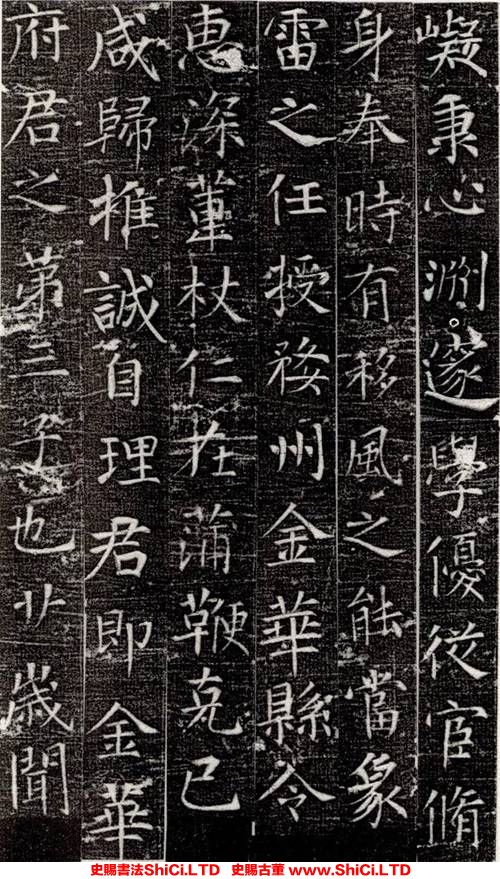 嶷秉心淵邃學優從宦脩
身奉時有移風之能當象
雷之任授婺州金華縣令
惠深葦杖仁在蒲鞭克己
咸歸推誠自理君即金華
府君之苐三子也廿歲聞
史賜書法ShiCi.LTD 史賜古董 www.ShiCi.LTD